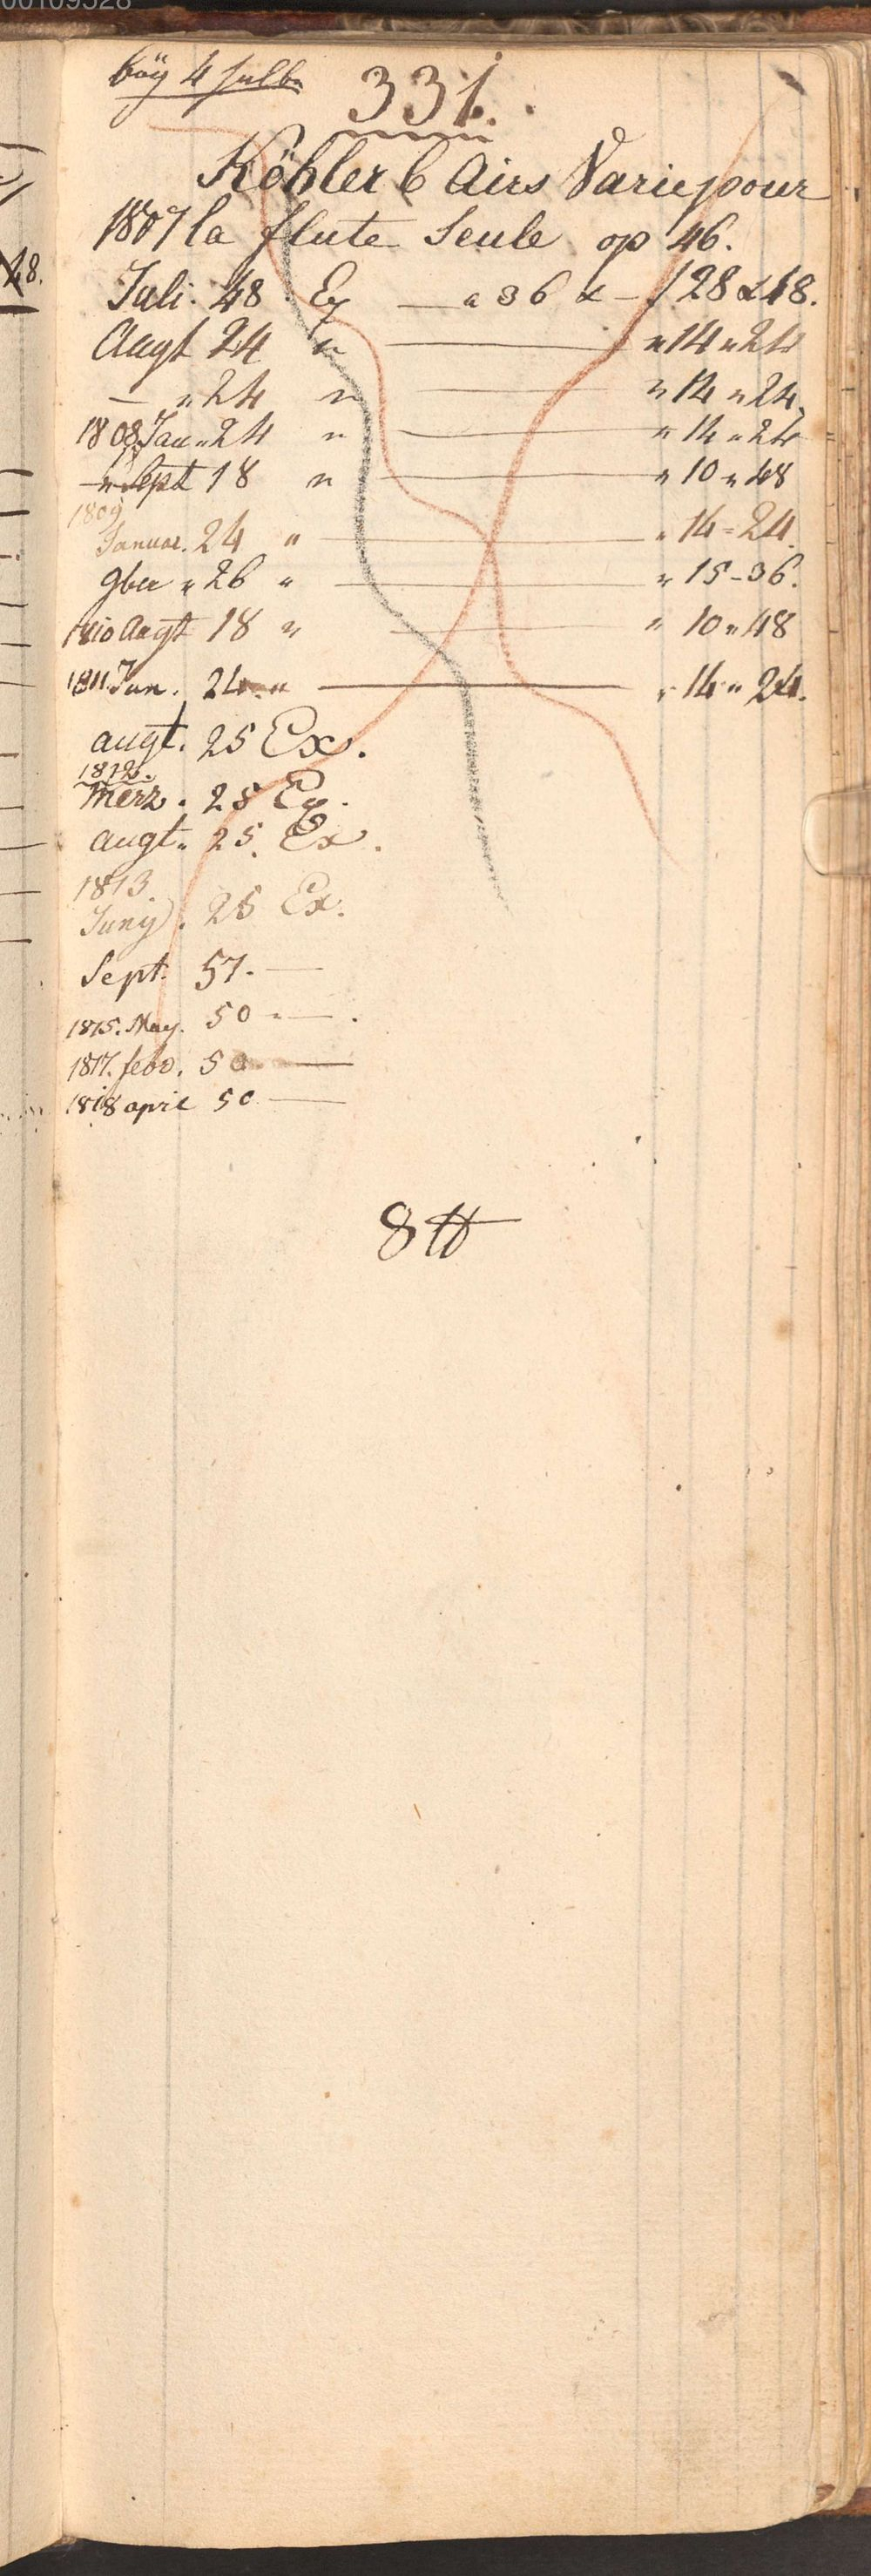 00109528
böy 4 halbe
331.
Köhler 6 Airs Varie pour
1807 la flute Seule op 46.
Juli. 48 Ex — a 36 x — f 28 x 48.
Augt 24 " — " 14 " 24
— " 24 " — " 14 " 24
1808 Jan " 24 " — " 14 " 24
— " Sept 18 " — " 10 " 48
1809
Januar. 24 " — " 14 = 24.
9ber " 26 " — " 15 - 36.
1810 Augt 18 " — " 10 " 48
1811 Jun. 24 " — " 14 " 24.
augt. 25 Ex.
1812.
Merz. 25 Ex.
augt. 25. Ex.
1813.
Juny. 25 Ex.
Sept. 57. —
1815. May. 50 " — .
1817. febr. 50 —
1818 april 50 —
8 tt
48.